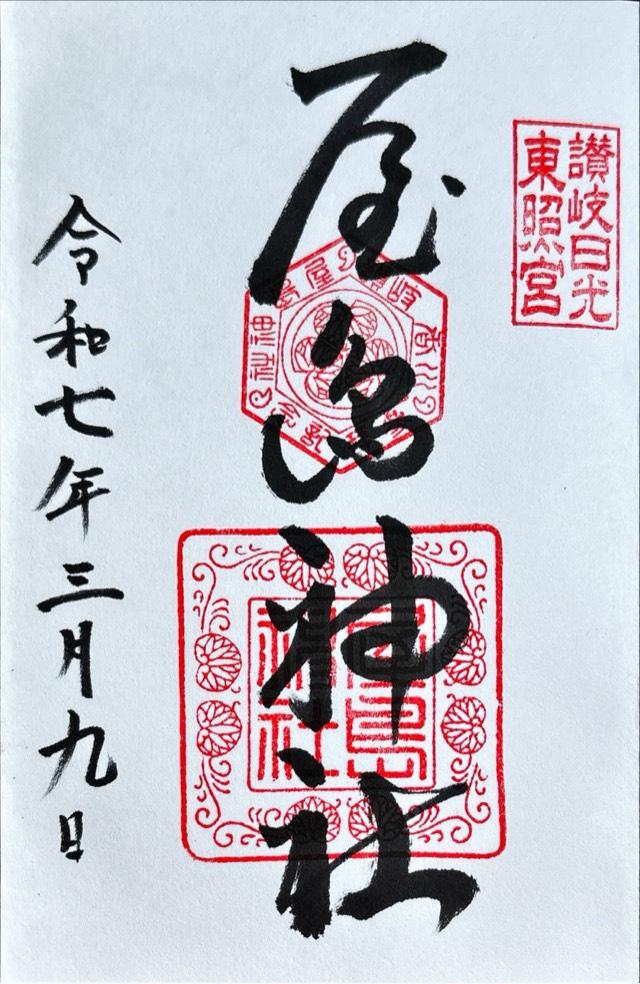 讃岐日光
東照宮
屋島神社
屋島
神社
令和七年三月九日